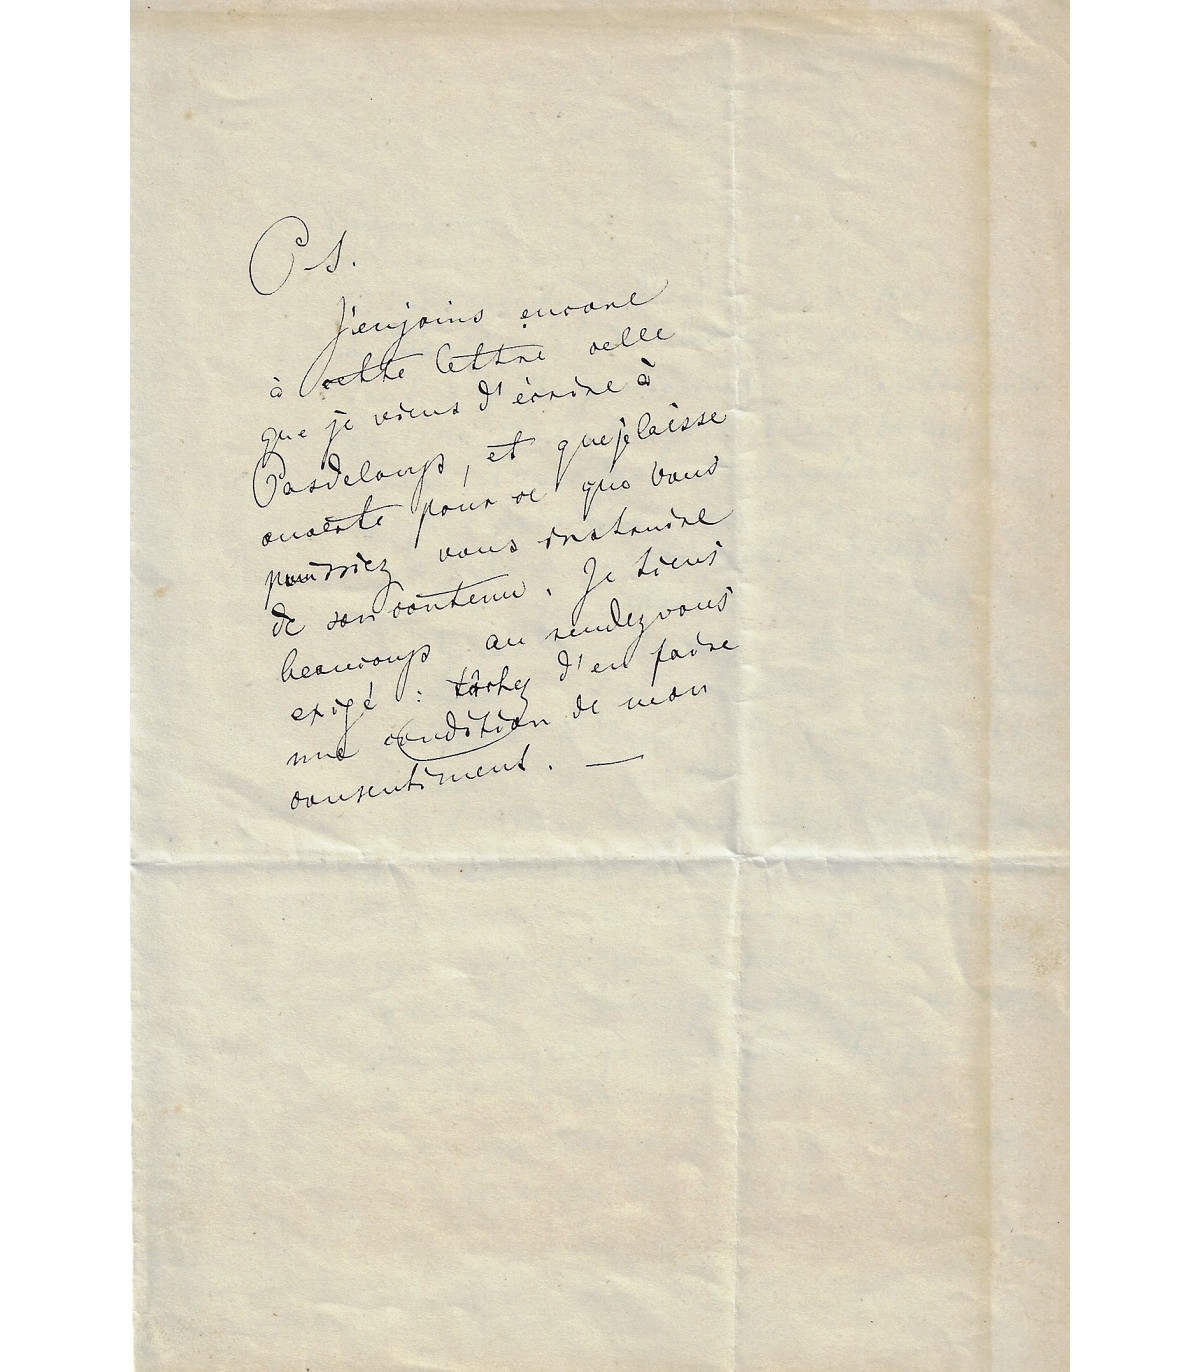 Ps.
J'enjoins encore
à cette lettre celle
que je viens d'écrire à
Pasdeloup, et que je laisse
ouverte pour ce que vous
puissiez vous instruire
de son contenu. Je tiens
beaucoup au rendezvous
exigé : tâchez d'en faire
une condition de mon
consentiment. —